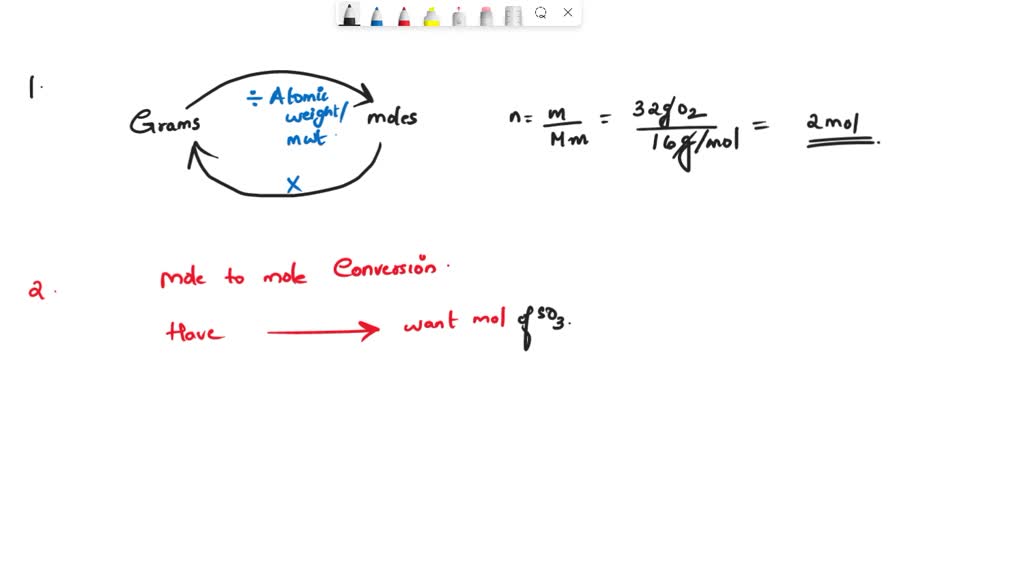 1.
Grams
÷ Atomic
weight/
mwt.
moles
x
n = m / Mm = 32g O2 / 16g/mol = 2 mol.
2.
Mole to mole Conversion.
Have → want mol of SO3.